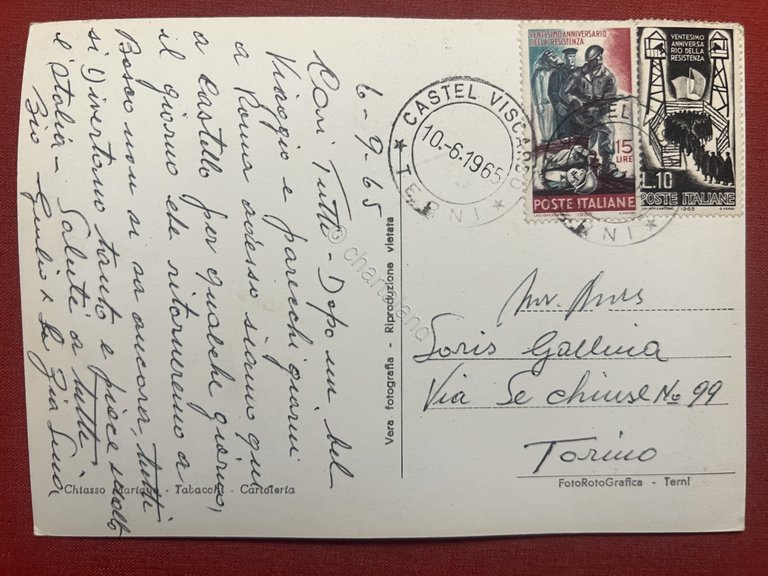 6-9-65
Cari Tutti - Dopo un bel
Viaggio e parecchi giorni
a Roma adesso siamo qui
a Castello per qualche giorno,
il giorno che ritorneremo a
Bosco non si sa ancora, tutti
si divertono tanto e piace molto
l'Italia - Saluti a tutti
Zio Giulio & la Zia Lina
Chiasso Mariano - Tabacchi - Cartoleria
Vera fotografia - Riproduzione vietata
CASTEL VISCARDO
10-6-1965
* TERNI *
VENTESIMO ANNIVERSARIO
DELLA RESISTENZA
15
LIRE
POSTE ITALIANE
1965
VENTESIMO
ANNIVERSA
RIO DELLA
RESISTENZA
L.10
POSTE ITALIANE
1965
Mr. Mrs
Loris Gallina
Via Se chiuse No 99
Torino
FotoRotoGrafica - Terni